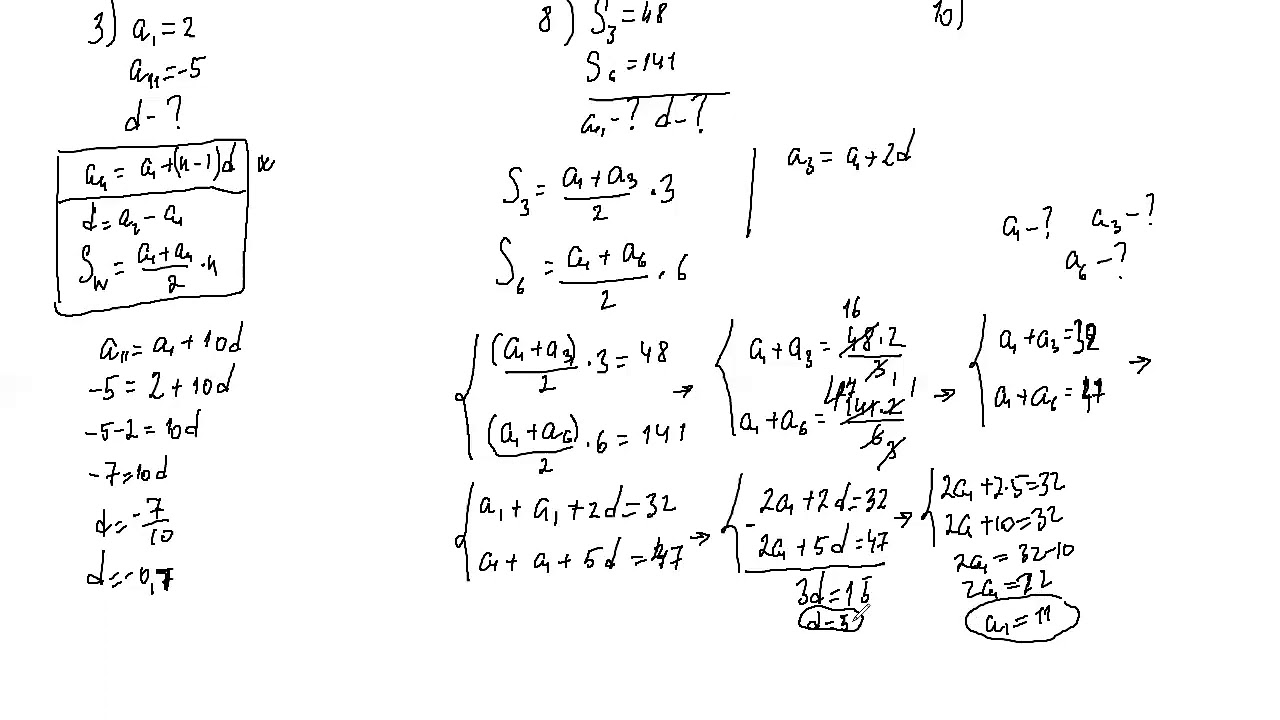 3) a₁ = 2
a₁₁ = -5
d - ?
aₙ = a₁ + (n-1)d
d = a₂ - a₁
Sₙ = (a₁ + aₙ)/2 · n
a₁₁ = a₁ + 10d
-5 = 2 + 10d
-5-2 = 10d
-7 = 10d
d = -7/10
d = -0,7
8) S₃ = 48
S₆ = 141
a₁ - ? d - ?
S₃ = (a₁ + a₃)/2 · 3
a₃ = a₁ + 2d
S₆ = (a₁ + a₆)/2 · 6
{ (a₁ + a₃)/2 · 3 = 48
(a₁ + a₆)/2 · 6 = 141 →
{ a₁ + a₃ = 48·2/3 16 1
a₁ + a₆ = 141·2/6 47 1 3 →
{ a₁ + a₃ = 32
a₁ + a₆ = 47 →
{ a₁ + a₁ + 2d = 32
a₁ + a₁ + 5d = 47 →
{ - 2a₁ + 2d = 32
2a₁ + 5d = 47 →
3d = 15
d = 5
{ 2a₁ + 2·5 = 32
2a₁ + 10 = 32
2a₁ = 32-10
2a₁ = 22
a₁ = 11
10)
a₁ - ? a₃ - ?
a₆ - ?